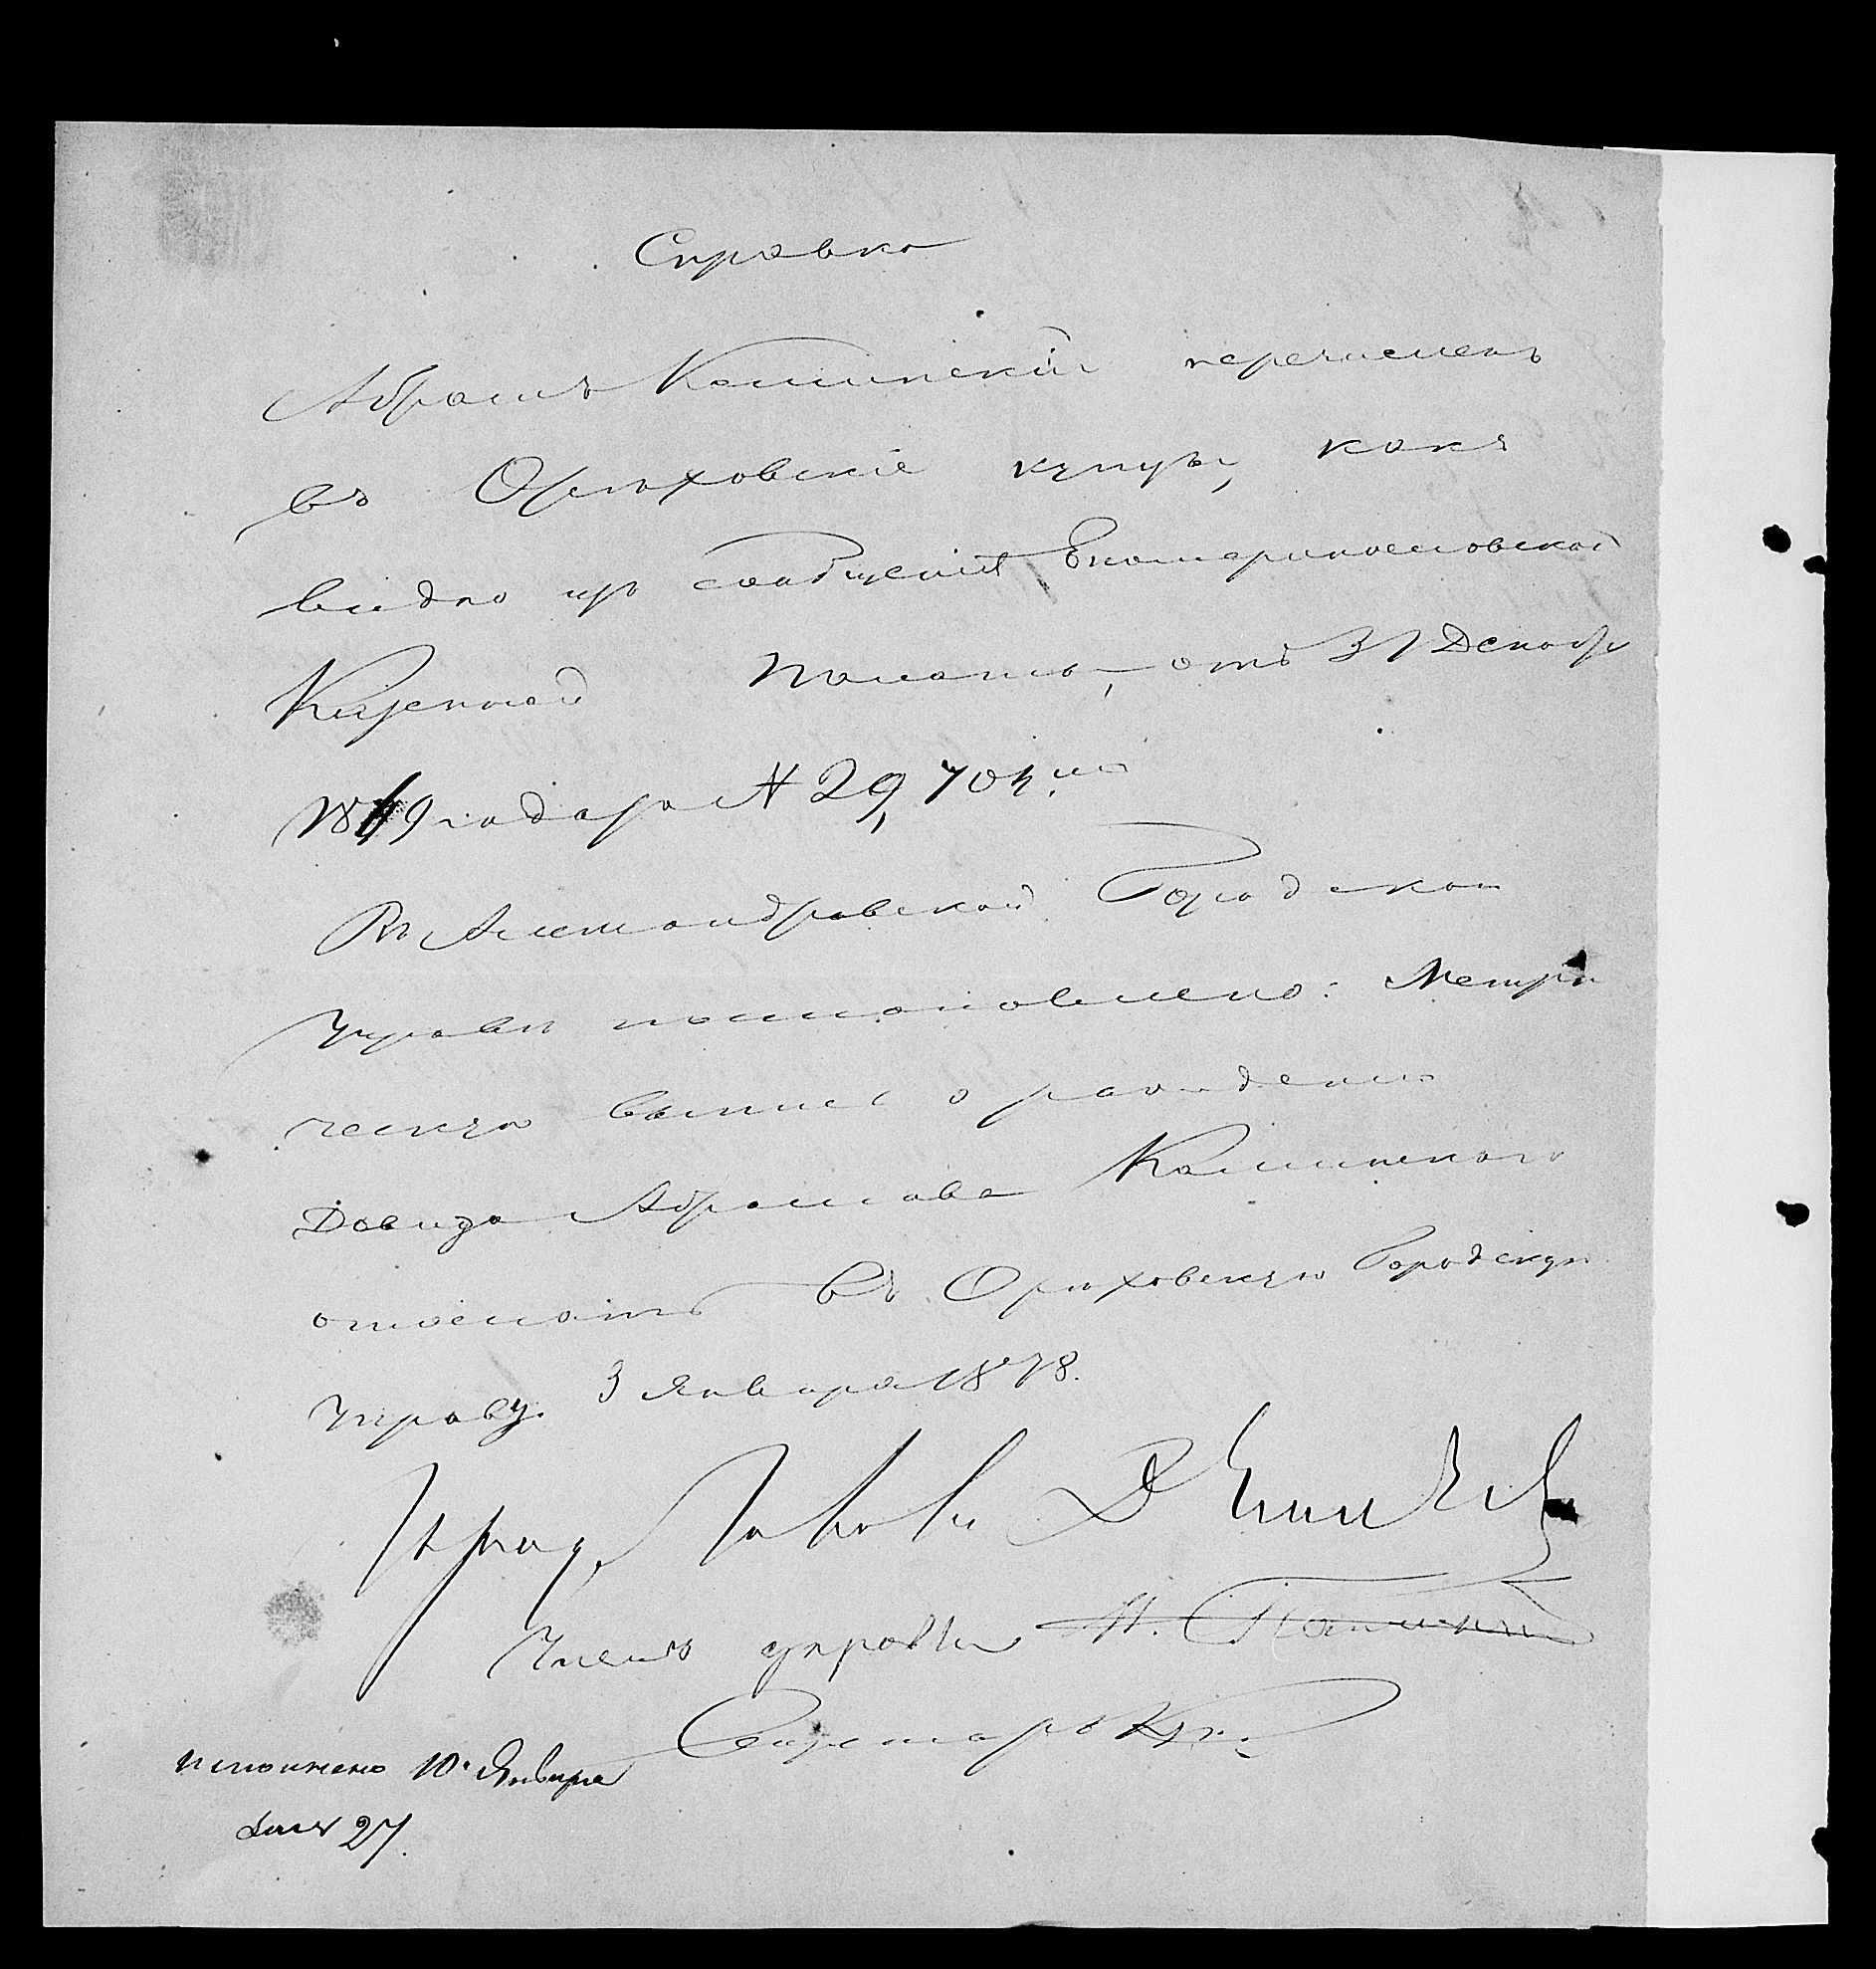 Справка
Абрамъ Каминскій перечисленъ
въ Ореховскіе купцы, какъ
видно изъ сообщенія Екатеринославской
Казенной Палаты, отъ 31 Декабр
годаза № 29,704.
Въ Александровской Городской
Управѣ постановлено: Метри
ческую выпись о рождении
Давида Абрамова Каминского
отослать въ Ореховскую Городскую
Управу. 3 Января 1878.
Голова Д
Членъ управы
Секретарь
исполнено 10 Января
за № 27.